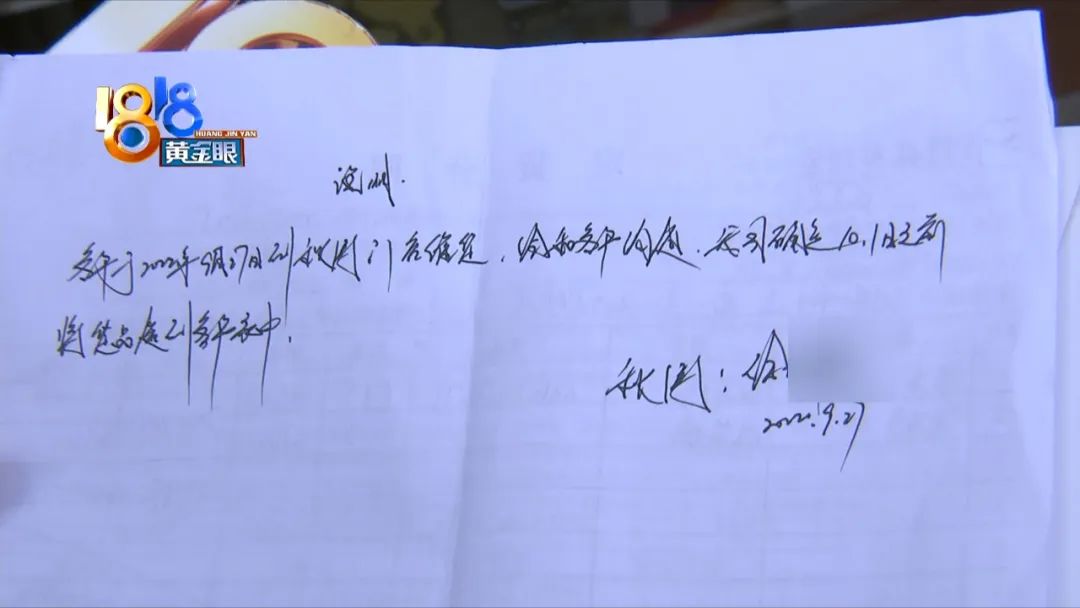 1818
HUANG JIN YAN
黄金眼
说明.
客户于2022年9月27日到秋图门店催货,经和客户沟通,公司确定10.1日之前
将货品送到客户家中.
秋图:徐
2022.9.27